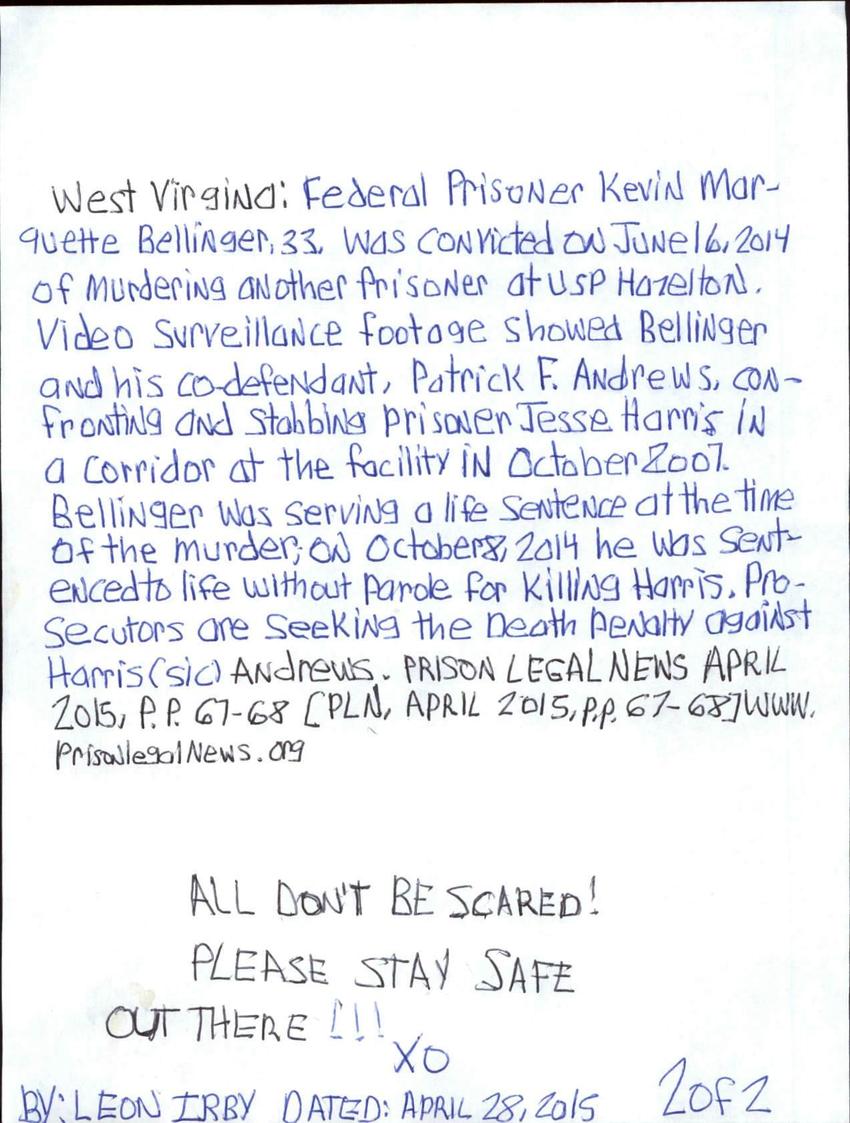 West Virgina: Federal Prisoner Kevin Mar-
quette Bellinger, 33, was convicted on June 16, 2014
of murdering another prisoner at USP Hazelton.
Video surveillance footage showed Bellinger
and his co-defendant, Patrick F. Andrews, con-
fronting and stabbing prisoner Jesse Harris in
a corridor at the facility in October 2007.
Bellinger was serving a life sentence at the time
of the murder; on October 8, 2014 he was sent-
enced to life without parole for killing Harris. Pro-
secutors are seeking the Death Penalty against
Harris (sic) Andrews. PRISON LEGAL NEWS APRIL
2015, P.P. 67-68 [PLN, APRIL 2015, p.p. 67-68] WWW.
PrisonlegalNews.org
ALL DON'T BE SCARED!
PLEASE STAY SAFE
OUT THERE !!!
XO
BY: LEON IRBY DATED: APRIL 28, 2015 2 of 2